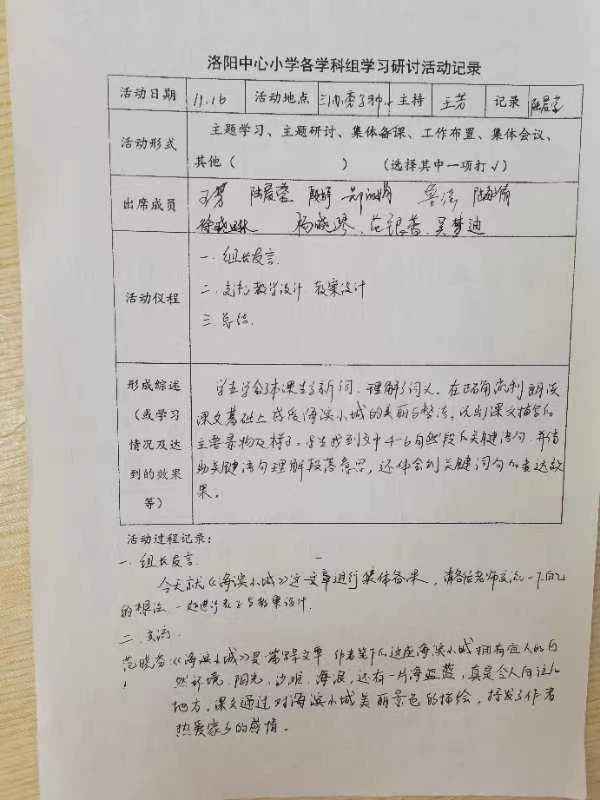 洛阳中心小学各学科组学习研讨活动记录
活动日期 11.16 活动地点 主持 王芳 记录 陆晨蓉
活动形式 主题学习、主题研讨、集体备课、工作布置、集体会议、
其他（ ） （选择其中一项打√）
出席成员 王芳 陆晨蓉
杨晓琴 范银香 吴梦迪
活动仪程 一. 组长发言
二. 交流教学设计 教案设计
三. 总结.
形成综述
（或学习
情况及达
到的效果
等）
学生学会本课生字新词. 理解了词义. 在正确流利朗读
课文基础上感受海滨小城的美丽与整洁, 说出课文描写的
主要景物及样子. 学生找到文中4-6自然段的关键语句. 并借
助关键语句理解段落意思, 还体会到关键词句的表达效
果。
活动过程记录：
一. 组长发言
今天就《海滨小城》这一文章进行集体备课, 请各位老师交流一下自己
的想法. 一起进行
二. 交流.
《海滨小城》是一篇写景文章 作者笔下的这座海滨小城拥有宜人的自
然环境, 阳光, 沙滩, 海浪, 还有一片海蓝蓝, 真是令人向往的
地方, 课文通过对海滨小城美丽景色的描绘, 抒发了作者
热爱家乡的感情。